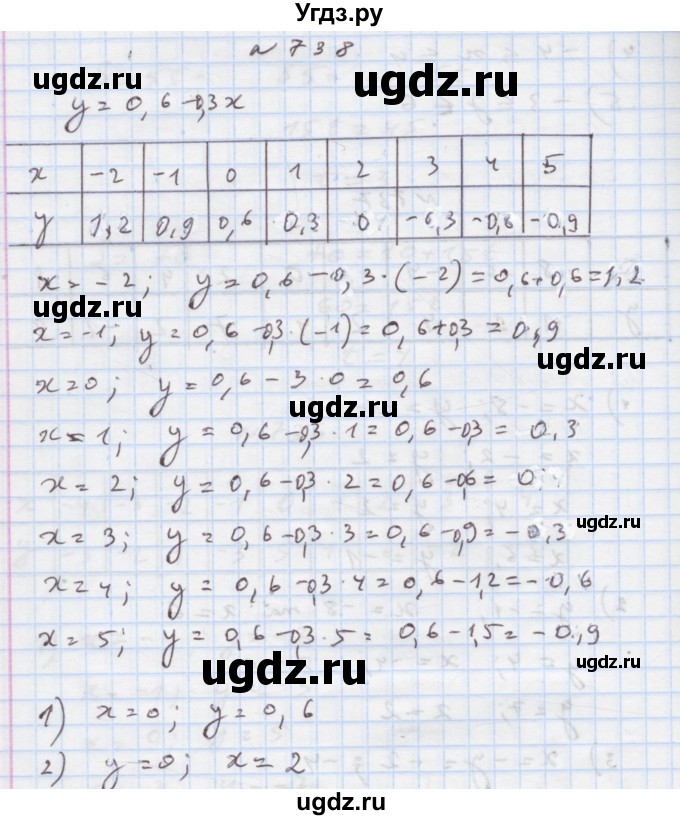 Угдз.ру
№ 738
ugdz.ru ugdz.ru
y = 0,6 - 0,3x
x -2 -1 0 1 2 3 4 5
y 1,2 0,9 0,6 0,3 0 -6,3 -0,6 -0,9
x = -2; y = 0,6 - 0,3 · (-2) = 0,6 + 0,6 = 1,2
ugdz.ru
x = -1; y = 0,6 - 0,3 · (-1) = 0,6 + 0,3 = 0,9
ugdz.ru
x = 0; y = 0,6 - 3 · 0 = 0,6
ugdz.ru
x = 1; y = 0,6 - 0,3 · 1 = 0,6 - 0,3 = 0,3
x = 2; y = 0,6 - 0,3 · 2 = 0,6 - 0,6 = 0;
ugdz.ru
x = 3; y = 0,6 - 0,3 · 3 = 0,6 - 0,9 = -0,3
x = 4; y = 0,6 - 0,3 · 4 = 0,6 - 1,2 = -0,6
x = 5; y = 0,6 - 0,3 · 5 = 0,6 - 1,5 = -0,9
ugdz.ru ugdz.ru
1) x = 0; y = 0,6
2) y = 0; x = 2
ugdz.ru
ugdz.ru